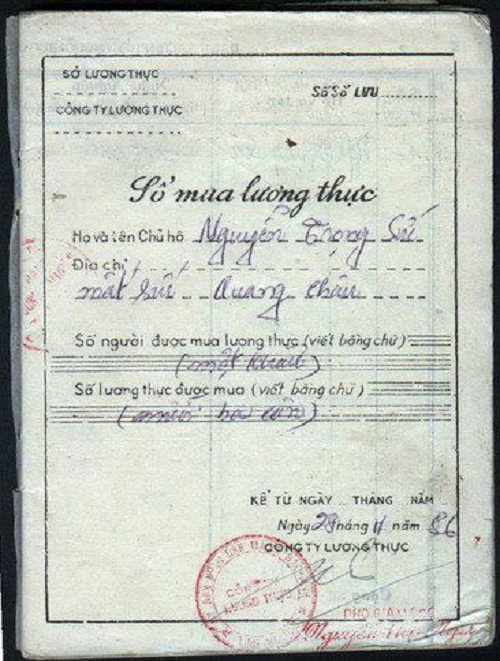 SỞ LƯƠNG THỰC
SốSổ LƯU
CÔNG TY LƯƠNG THỰC
Sổ mua lương thực
Họ và tên Chủ hộ Nguyễn Trọng Sử
Địa chỉ
mất sứt Quang Châu
Số người được mua lương thực (viết bằng chữ)
(một khẩu)
Số lương thực được mua (viết bằng chữ)
(mười ba cân)
KỂ TỪ NGÀY THÁNG NĂM
Ngày 28 tháng 11 năm 86
CÔNG TY LƯƠNG THỰC
CÔNG TY
LƯƠNG THỰC
PHÓ GIÁM ĐỐC
Nguyễn